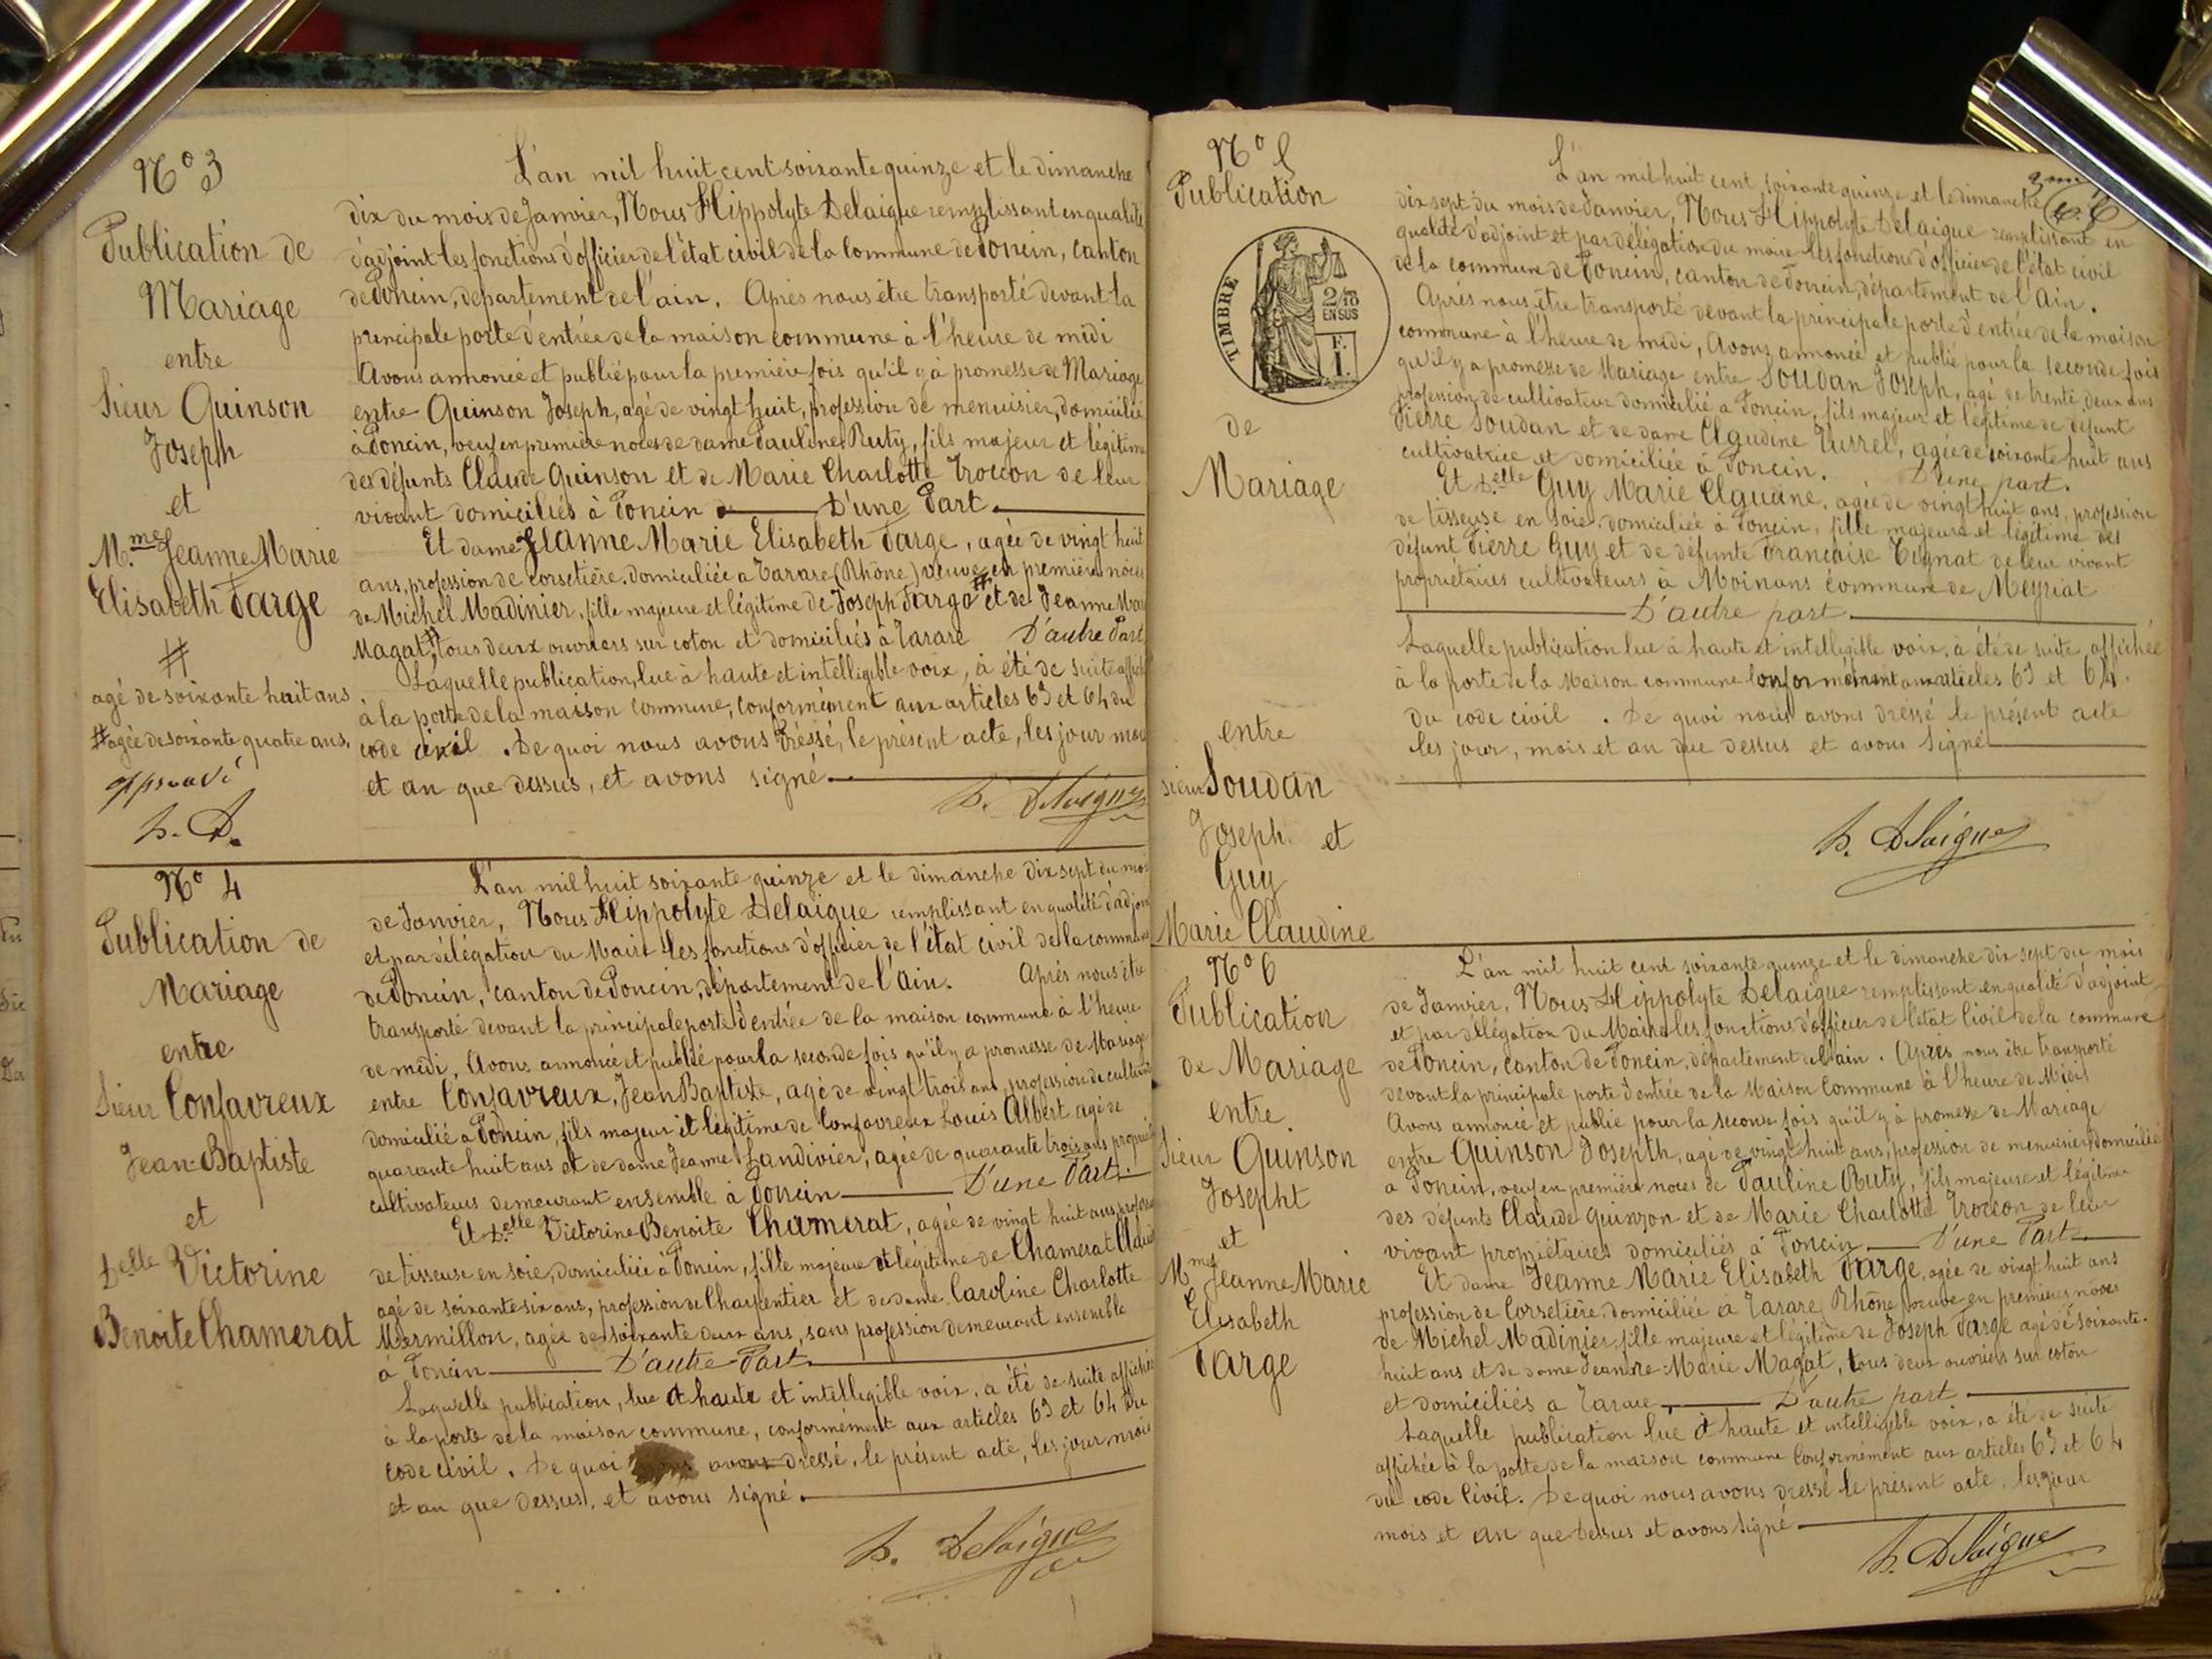 N° 3
Publication de
Mariage
entre
Sieur Quinson
Joseph
et
M.me Jeanne Marie
Elisabeth Farge
#
agé de soixante huit ans
# agée de soixante quatre ans.
approuvé
h. D.
L'an mil huit cent soixante quinze et le dimanche
dix du mois de Janvier, Nous Hippolyte Delaigue remplissant en qualité
d'adjoint les fonctions d'officier de l'état civil de la Commune de Poncin, Canton
de Poncin, departement de l'ain. Après nous être transporté devant la
principale porte d'entrée de la maison commune à l'heure de midi
Avons annoncé et publié pour la première fois qu'il y à promesse de Mariage
entre Quinson Joseph, agé de vingt huit, profession de menuisier, domicilié
à Poncin, veuf en première noces de dame Pauline Ruty, fils majeur et légitime
des défunts Claude Quinson et de Marie Charlotte Troccon de leur
vivant domiciliés à Poncin D'une Part.
Et dame Jeanne Marie Elisabeth Farge, agée de vingt huit
ans, profession de corsetière. domiciliée a Tarare (Rhône) veuve en première noces
de Michel Madinier, fille majeure et légitime de Joseph Farge # et de Jeanne Mar
Magat # tous deux ouvriers sur coton et domiciliés à Tarare D'autre Part
Laquelle publication, lue à haute et intelligible voix, à été de suite affich
à la porte de la maison commune, conformément aux articles 63 et 64 du
code civil. De quoi nous avons dressé, le présent acte, les jour moi
et an que dessus, et avons signé.
h. Delaigue
N° 4
Publication de
Mariage
entre
Sieur Confavreux
Jean-Baptiste
et
Delle Victorine
Benoite Chamerat
L'an mil huit soixante quinze et le dimanche dix sept du moi
de Janvier, Nous Hippolyte Delaigue remplissant en qualité d'adjoin
et par délégation du Maire les fonctions d'officier de l'état civil de la commun
de Poncin, canton de Poncin, département de l'Ain. Après nous être
transporté devant la principale porte d'entrée de la maison commune à l'heure
de midi, Avons annoncé et publié pour la seconde fois qu'il y a promesse de Mariage
entre Confavreux, Jean Baptiste, agé de vingt trois ans, profession de cultiva
domicilié a Poncin, fils majeur et légitime de Confavreux Louis Albert agé de
quarante huit ans et de dame Jeanne Landivier, agée de quarante trois ans propri
cultivateurs demeurant ensemble à Poncin D'une Part.
Et D.elle Victorine Benoite Chamerat, agée de vingt huit ans, profes
de tisseuse en soie, domiciliée à Poncin, fille majeure et légitime de Chamerat Claud
agé de soixante six ans, profession de Charpentier et de dame Caroline Charlotte
Mermillon, agée de soixante deux ans, sans profession demeurant ensemble
à Poncin D'autre Part.
Laquelle publication, lue à haute et intelligible voix, a été de suite affichée
à la porte de la maison commune, conformément aux articles 63 et 64 du
code civil. De quoi nous avons dressé, le présent acte, les jour mois
et an que dessus, et avons signé.
h. Delaigue
N° 5
Publication
TIMBRE
2/10
EN SUS
F.
1.
de
Mariage
entre
sieur Soudan
Joseph. et
Guy
Marie Claudine
L'an mil huit cent soixante quinze et le dimanche
dix sept du mois de Janvier, Nous Hippolyte Delaigue remplissant en
qualité d'adjoint et par délégation du maire les fonctions d'officier de l'état civil
de la commune de Poncin, canton de Poncin, département de l'Ain.
Après nous être transporté devant la principale porte d'entrée de la maison
commune à l'heure de midi, Avons annoncé et publié pour la seconde fois
qu'il y a promesse de Mariage entre Soudan Joseph, agé de trente deux ans
profession de cultivateur domicilié a Poncin, fils majeur et légitime de défunt
Pierre Soudan et de dame Claudine Turrel, agée de soixante huit ans
cultivatrice et domiciliée à Poncin. D'une part.
Et D.elle Guy Marie Claudine, agée de vingt huit ans, profession
de tisseuse en soie, domiciliée à Poncin, fille majeure et légitime des
défunt Pierre Guy et de défunte Françoise Tignat de leur vivant
propriétaires cultivateurs à Moinans commune de Meyriat
D'autre part
Laquelle publication lue à haute et intelligible voix, à été de suite affichée
à la porte de la Maison commune conformément aux articles 63 et 64.
du code civil. De quoi nous avons dressé le présent acte
les jour, mois et an que dessus et avons signé
h. Delaigue
N° 6
Publication
de Mariage
entre
Sieur Quinson
Josepht
et
Mme Jeanne Marie
Elisabeth
Farge
L'an mil huit cent soixante quinze et le dimanche dix sept du mois
de Janvier, Nous Hippolyte Delaigue remplissant en qualité d'adjoint
et par délégation du Maire les fonctions d'officier de l'état Civil de la commune
de Poncin, canton de Poncin, département de l'ain. Après nous être transporté
devant la principale porte d'entrée de la Maison Commune à l'heure de Midi
Avons annoncé et publié pour la seconde fois qu'il y à promesse de Mariage
entre Quinson Josepth, agé de vingt huit ans, profession de menuisier, domicilié
a Poncin, veuf en première noces de Pauline Ruty, fils majeure et légitime
des défunts Claude Quinzon et de Marie Charlotte Troccon de leur
vivant propriétaires domiciliés à Poncin D'une Part
Et dame Jeanne Marie Elisabeth Farge, agée de vingt huit ans
profession de Corsetière, domiciliée à Tarare, Rhône, veuve en premières noces
de Michel Madinier, fille majeure et légitime de Joseph Farge agé de soixante-
huit ans et de dame Jeanne-Marie Magat, tous deux ouvriers sur coton
et domiciliés a Tarare. D'autre part
Laquelle publication lue à haute et intelligible voix, a été de suite
affichée à la porte de la maison commune Conformément aux articles 63 et 64
du code Civil. De quoi nous avons dressé le présent acte, les jour
mois et an que dessus et avons signé
h. Delaigue